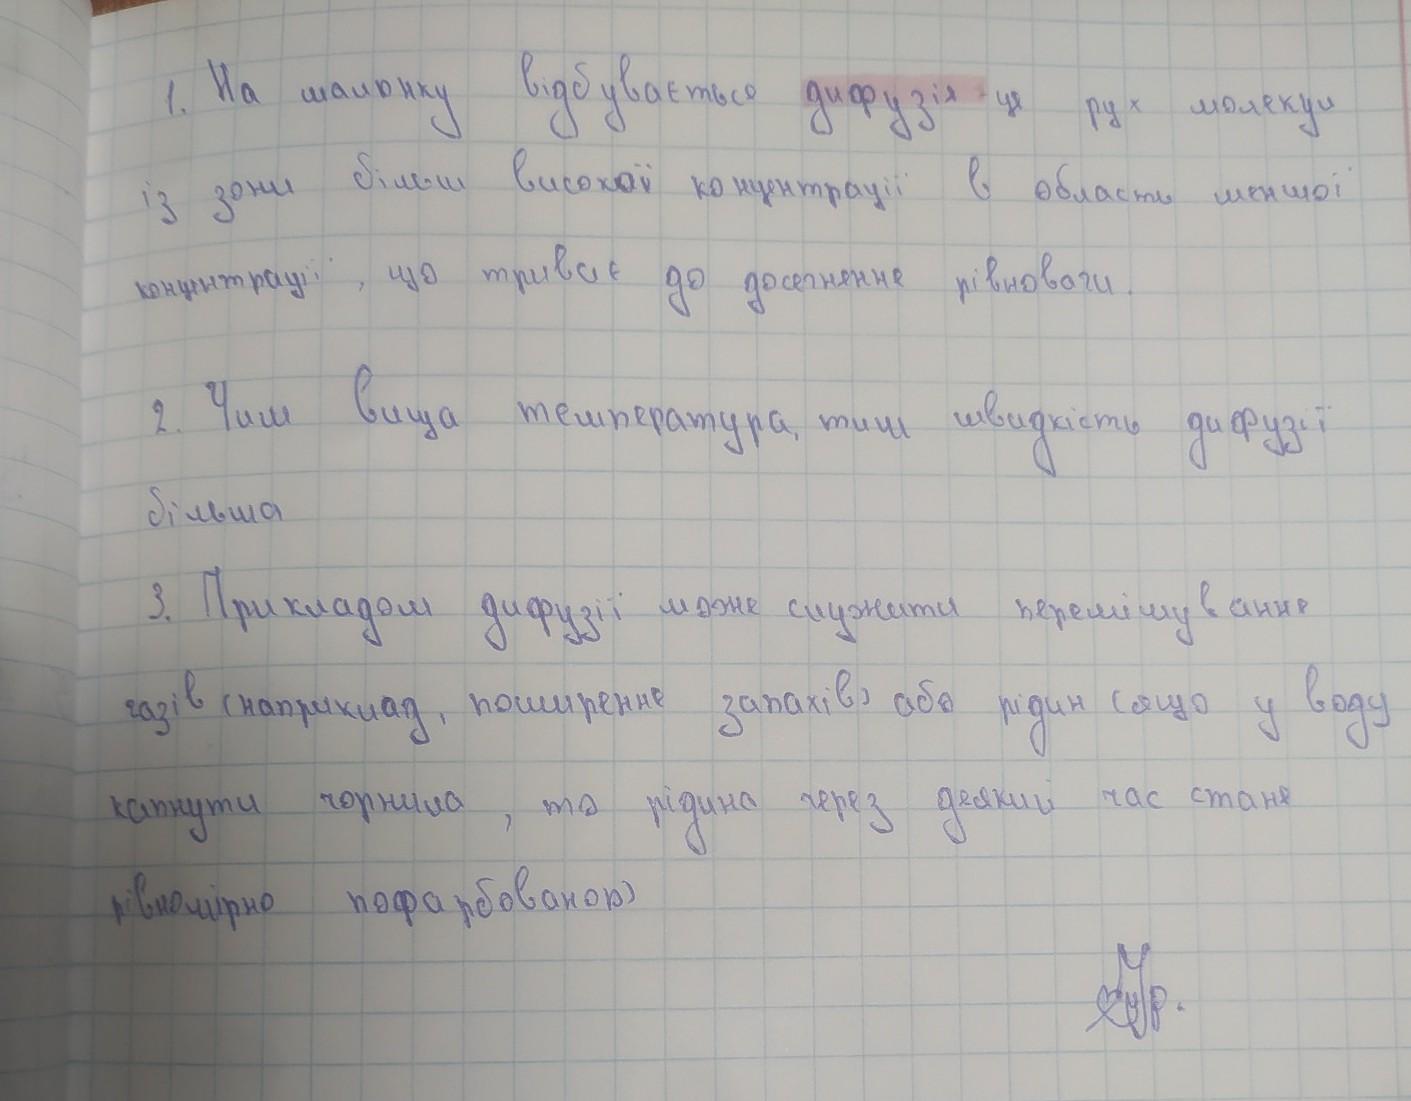 1. На малюнку відбувається дифузія - це рух молекул
із зони більш високої концентрації в область меншої
концентрації, що триває до досягнення рівноваги.
2. Чим вища температура, тим швидкість дифузії
більша
3. Прикладом дифузії може служити перемішування
газів (наприклад, поширення запахів) або рідин (якщо у воду
капнути чорнила, то рідина через деякий час стане
рівномірно пофарбованою)